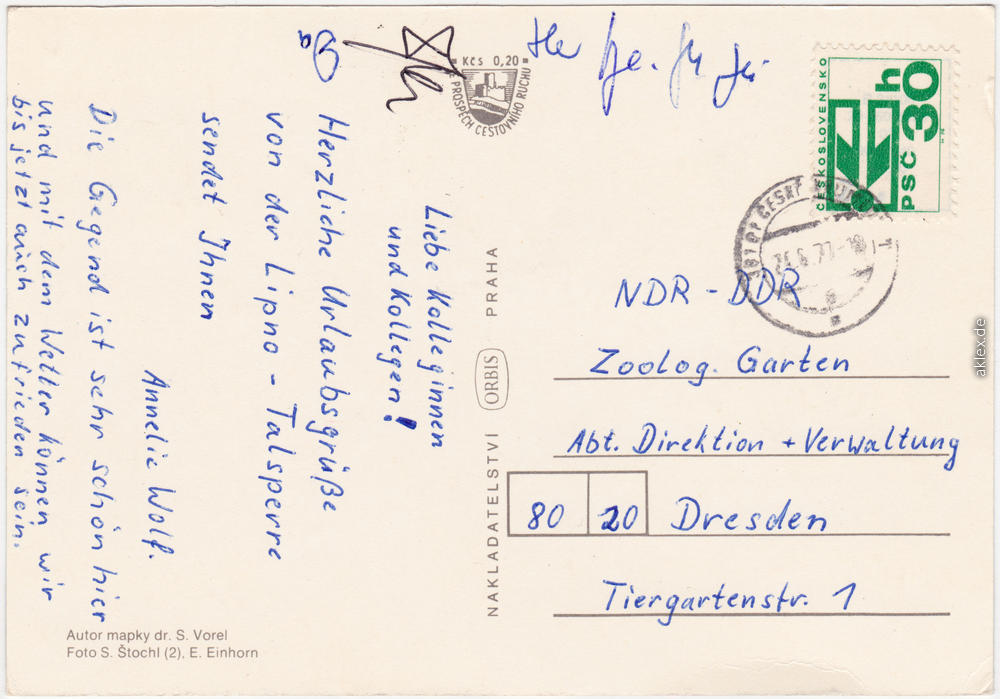 Liebe Kolleginnen
und Kollegen!
Herzliche Urlaubsgrüße
von der Lipno - Talsperre
sendet Ihnen
Annelie Wolf.
Die Gegend ist sehr schön hier
und mit dem Wetter können wir
bis jetzt auch zufrieden sein.
Kčs 0,20
VE PROSPĚCH CESTOVNÍHO RUCHU
ČESKOSLOVENSKO
PSČ 30 h
ČESKÝ
NDR - DDR
Zoolog. Garten
Abt. Direktion + Verwaltung
80 20 Dresden
Tiergartenstr. 1
NAKLADATELSTVÍ ORBIS PRAHA
Autor mapky dr. S. Vorel
Foto S. Štochl (2), E. Einhorn
aklex.de